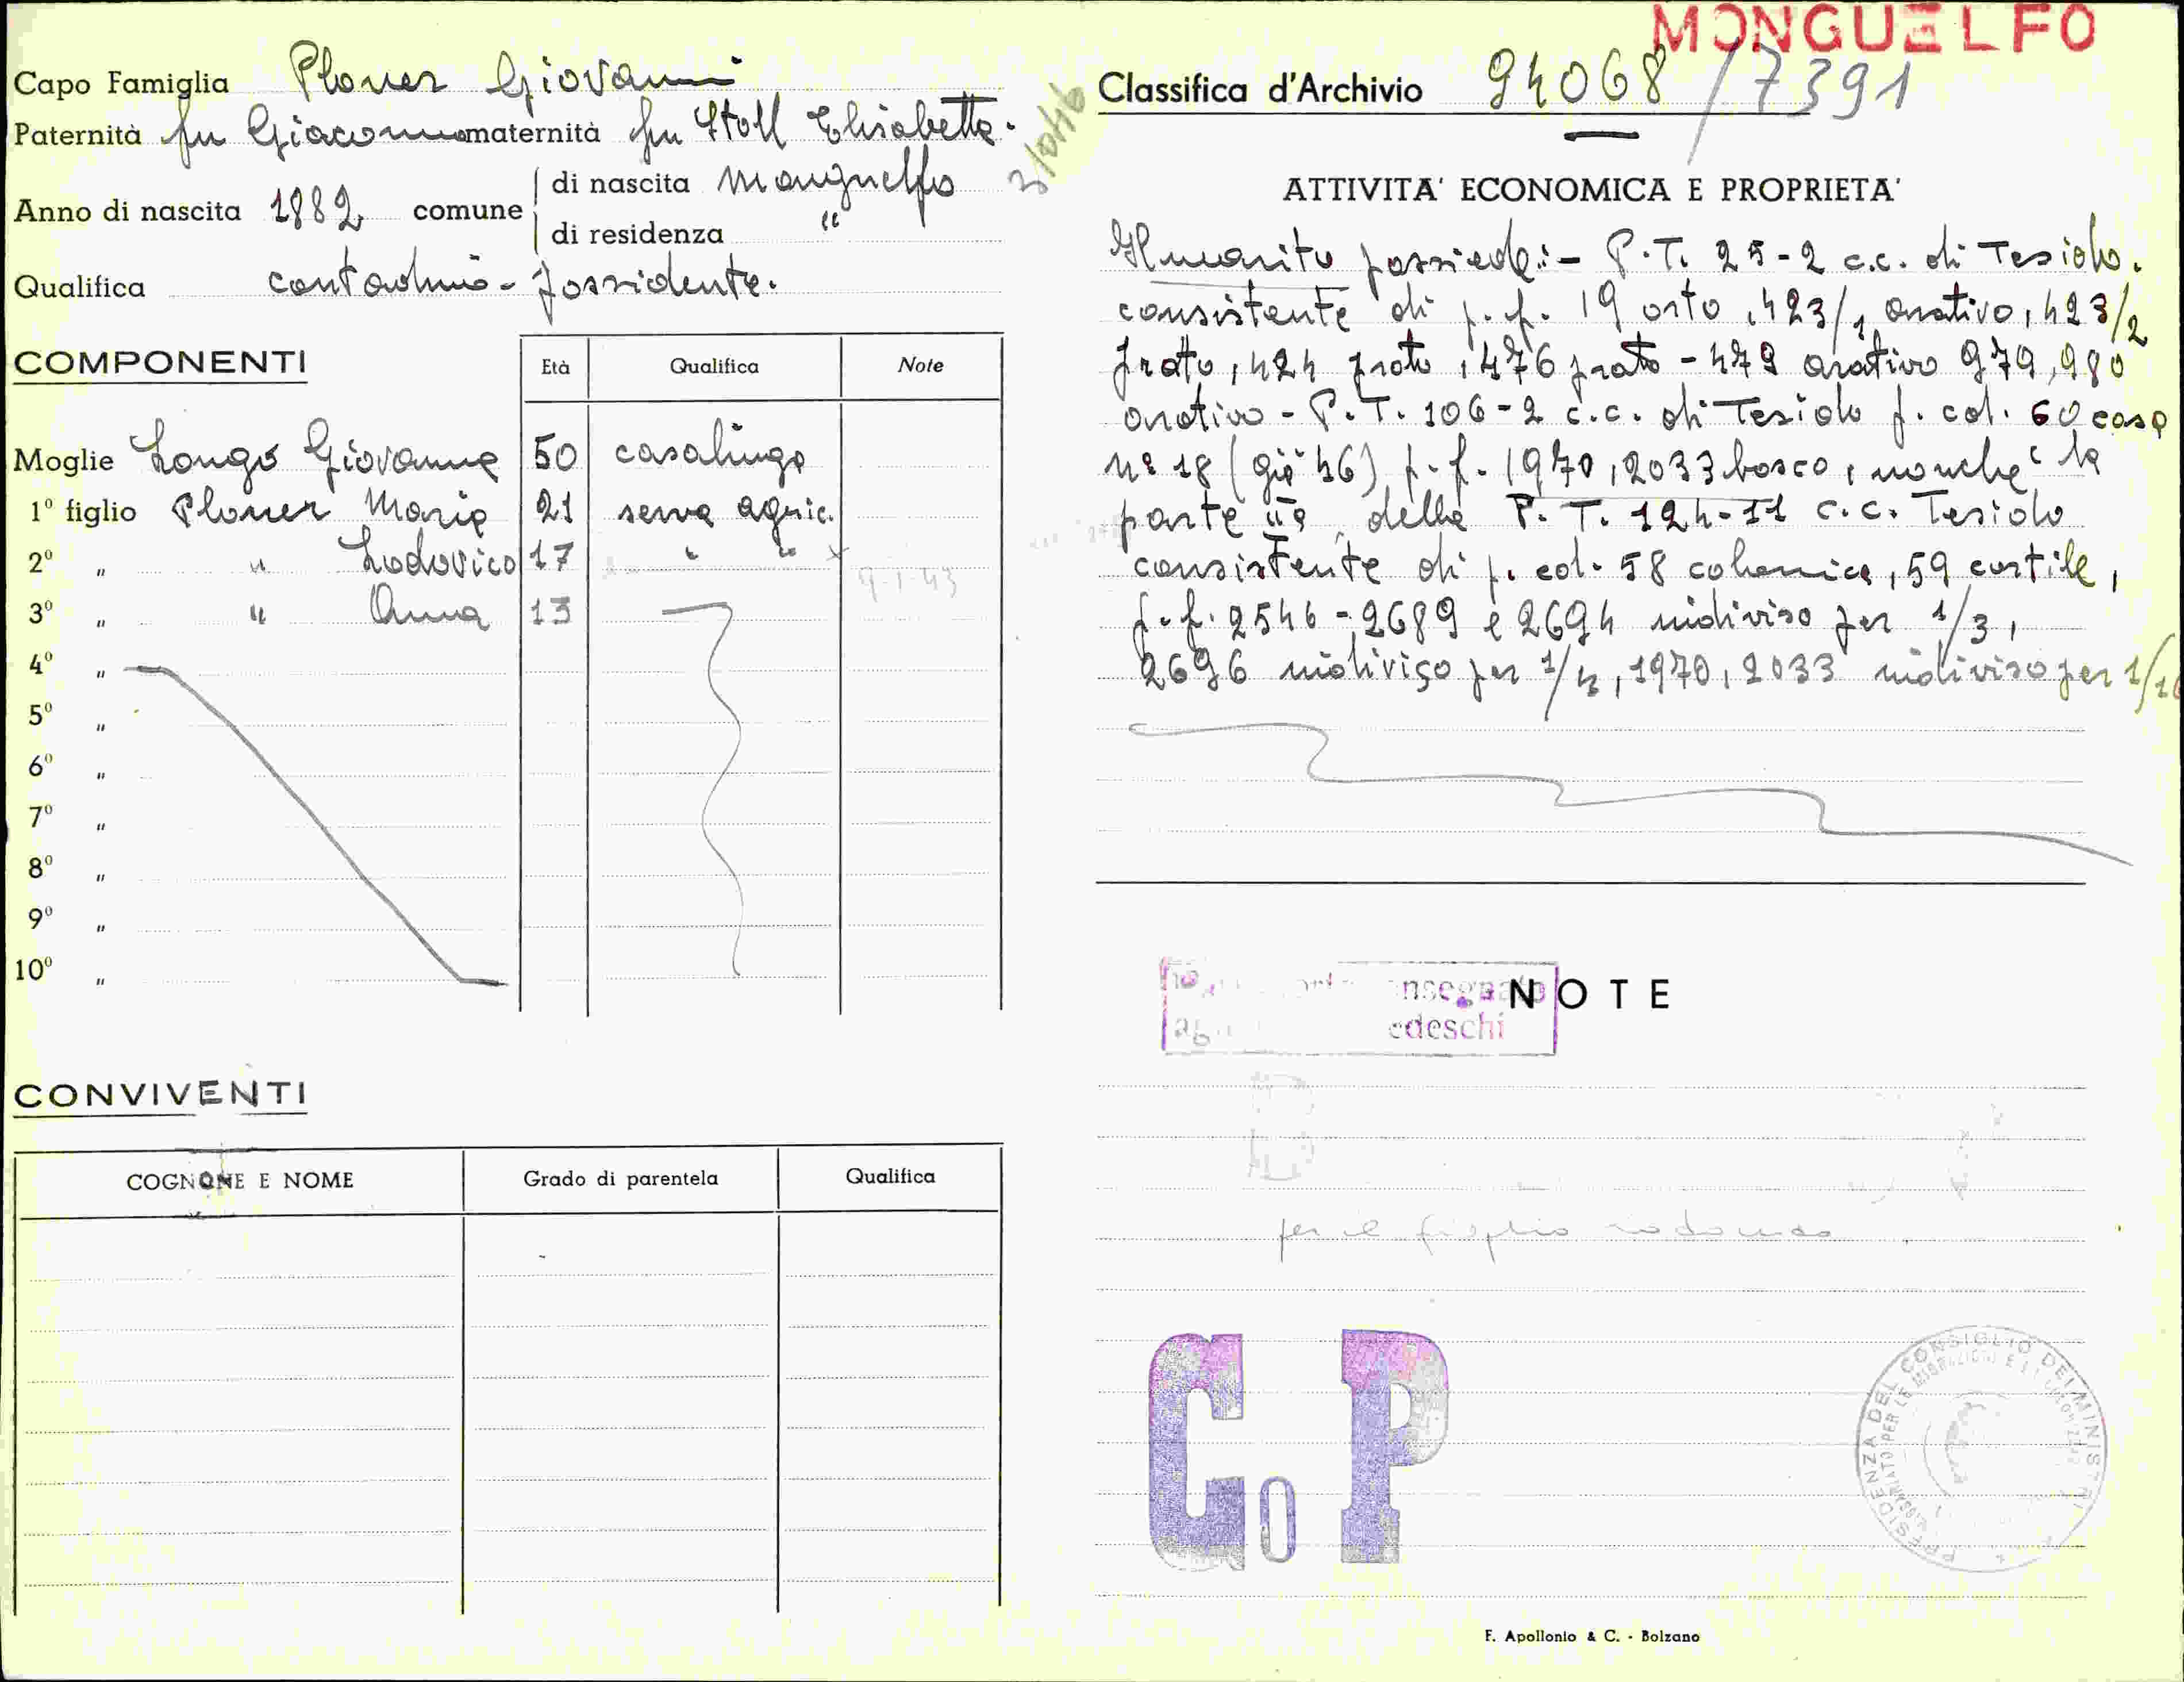 MONGUELFO
Capo Famiglia Ploner Giovanni
Classifica d'Archivio 94068/7391
Paternità fu Giacomo maternità fu Stoll Elisabetta.
Anno di nascita 1882 comune
di nascita Monguelfo
di residenza "
Qualifica contadino - possidente.
COMPONENTI Età Qualifica Note
Moglie Longo Giovanna 50 casalinga
1º figlio Ploner Maria 21 serva agric.
2º " " Lodovico 17 " " x
9-1-43
3º " " Anna 13
4º "
5º "
6º "
7º "
8º "
9º "
10º "
CONVIVENTI
COGNOME E NOME Grado di parentela Qualifica
ATTIVITA' ECONOMICA E PROPRIETA'
Il marito possiede:- P.T. 25-2 c.c. di Tesido.
consistente di p.f. 19 orto, 423/1 arativo, 423/2
prato, 424 prato, 476 prato - 479 arativo 979, 980
arativo - P.T. 106-2 c.c. di Tesido p. col. 60 casa
nº 18 (già 46) p.f. 1970, 2033 bosco, nonchè la
parte IIa della P.T. 124-II c.c. Tesido
consistente di p. ed. 58 colonica, 59 cortile,
p.f. 2546 - 2689 e 2694 indiviso per 1/3,
2696 indiviso per 1/4, 1970, 2033 indiviso per 1/16
NOTE
edeschi
per il figlio
C o P
PRESIDENZA DEL CONSIGLIO DEI MINISTRI
F. Apollonio & C. - Bolzano